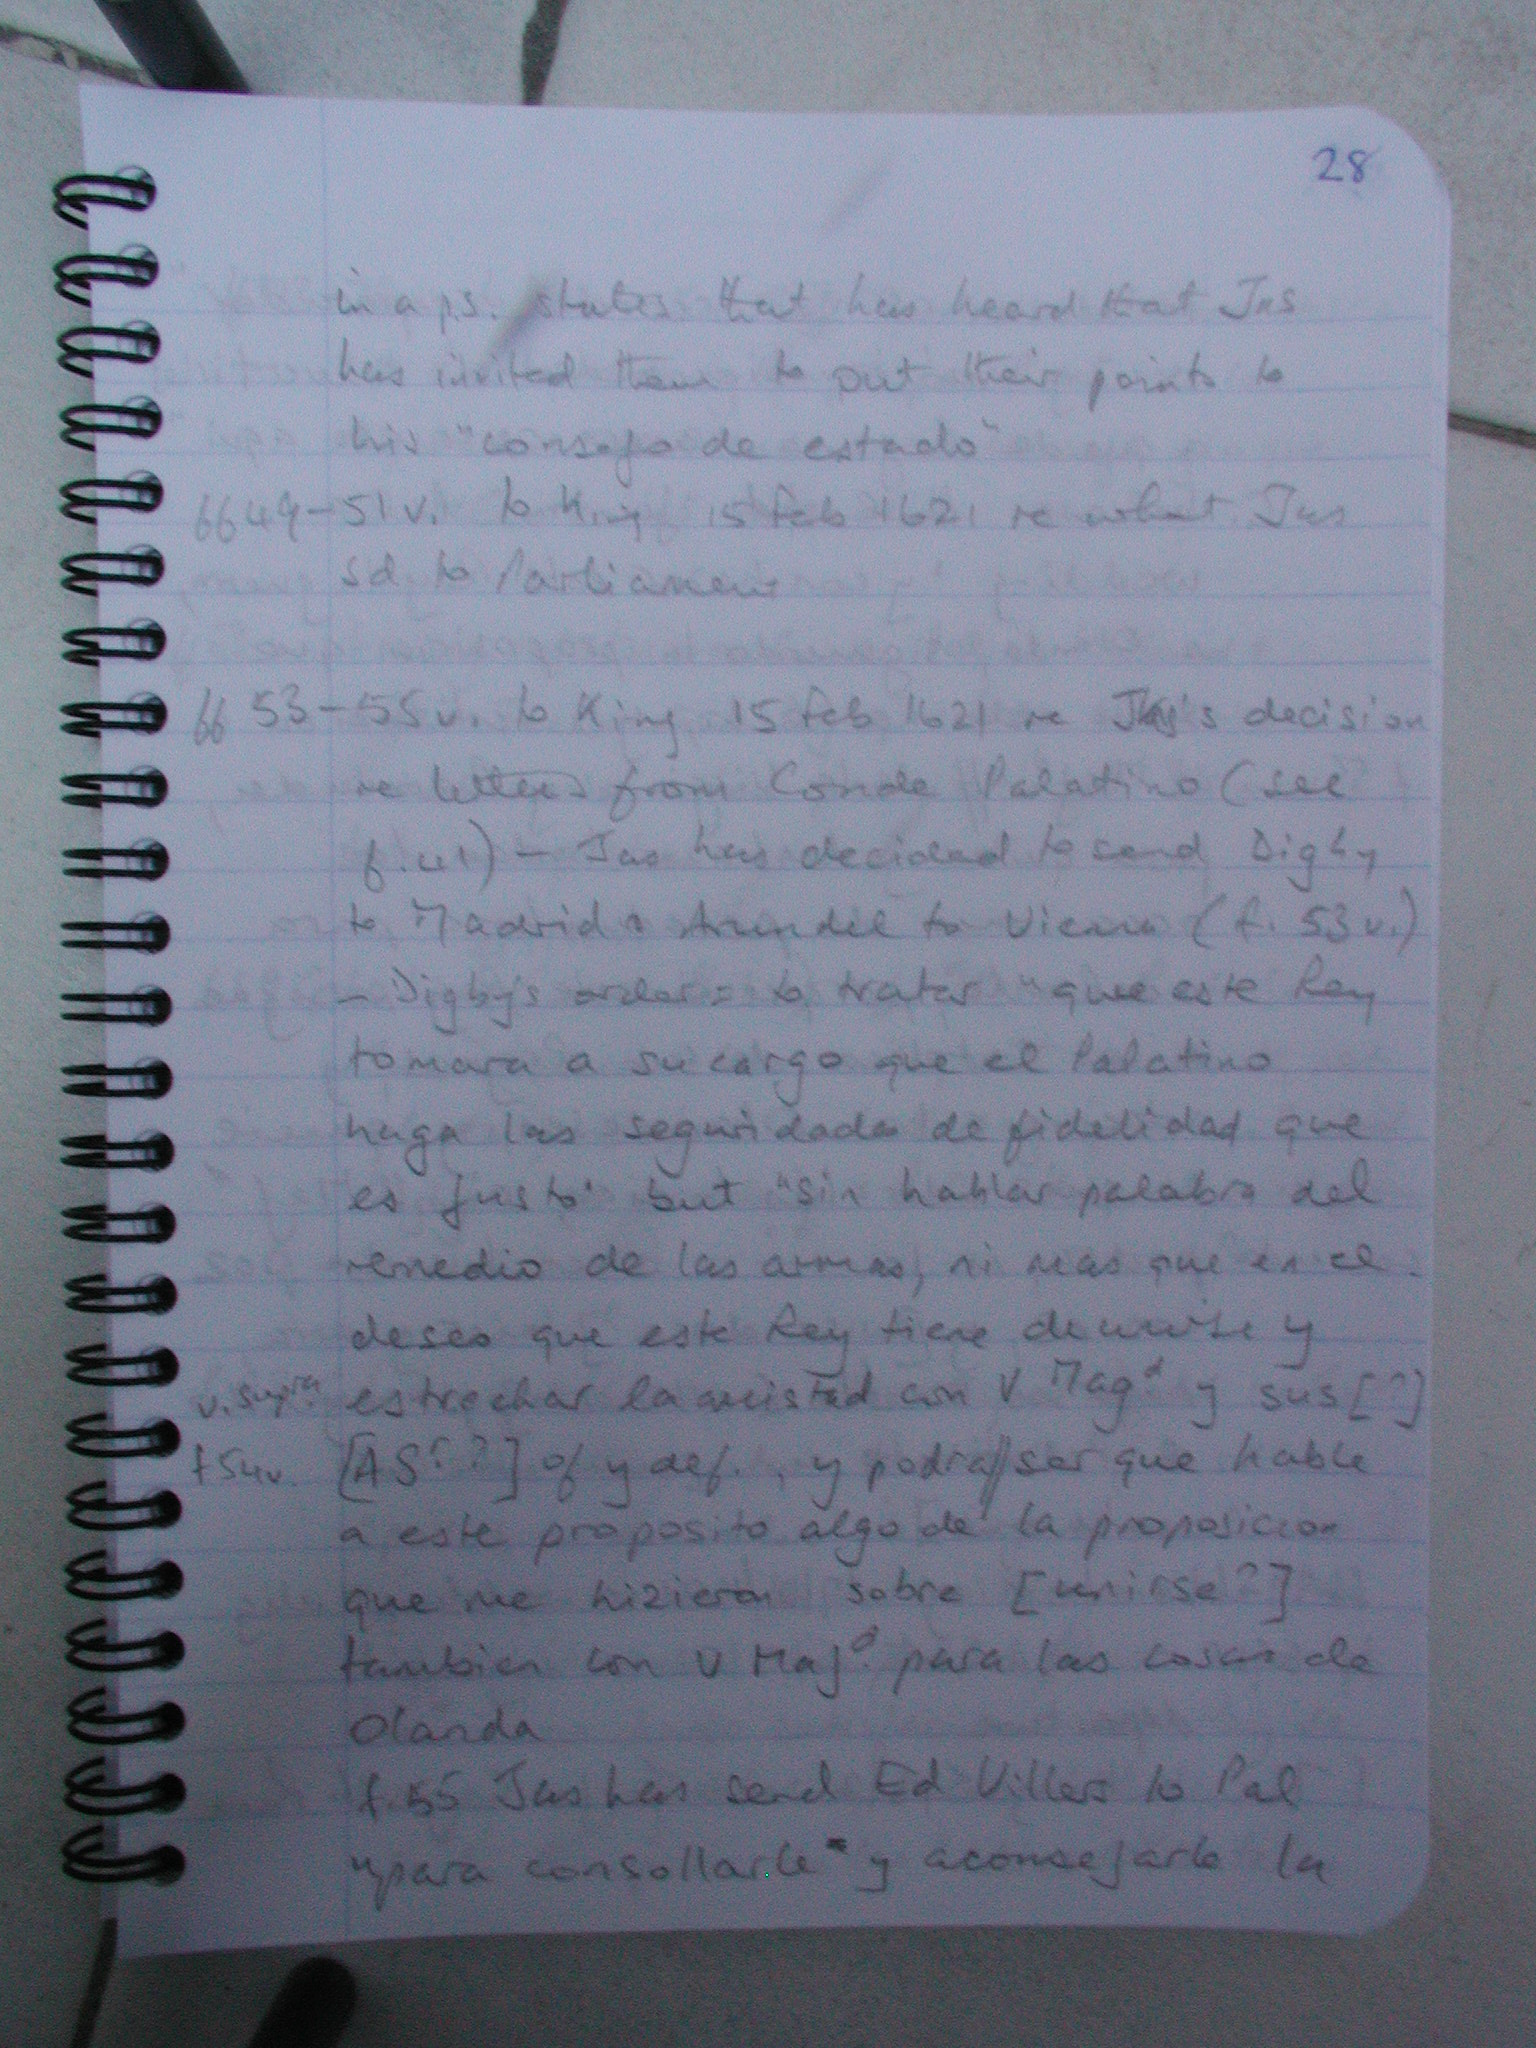 28
in a p.s. states that has heard that Jas
has invited them to put their points to
his "consejo de estado"
ff 49-51v. to King 15 Feb 1621 re what Jas
sd to Parliament
ff 53-55v. to King, 15 Feb 1621 re Jas's decision
re letters from Conde Palatino (see
f. 41) - Jas has decided to send Digby
to Madrid & Arundel to Vienna (f. 53v.)
- Digby's orders = to tratar "que este Rey
tomara a su cargo que el Palatino
haga las seguridades de fidelidad que
es justo" but "sin hablar palabra del
remedio de las armas, ni mas que en el
deseo que este Rey tiene de unirse y
v. supra estrechar la amistad con V Magd y sus [?]
f54v. [AS??] of y def., y podra//ser que hable
a este proposito algo de la proposicion
que me hizieron sobre [unirse?]
tambien con V Majd. para las cosas de
Olanda
f.55 Jas has send Ed Villers to Pal
"para consollarle" y aconsejarle la